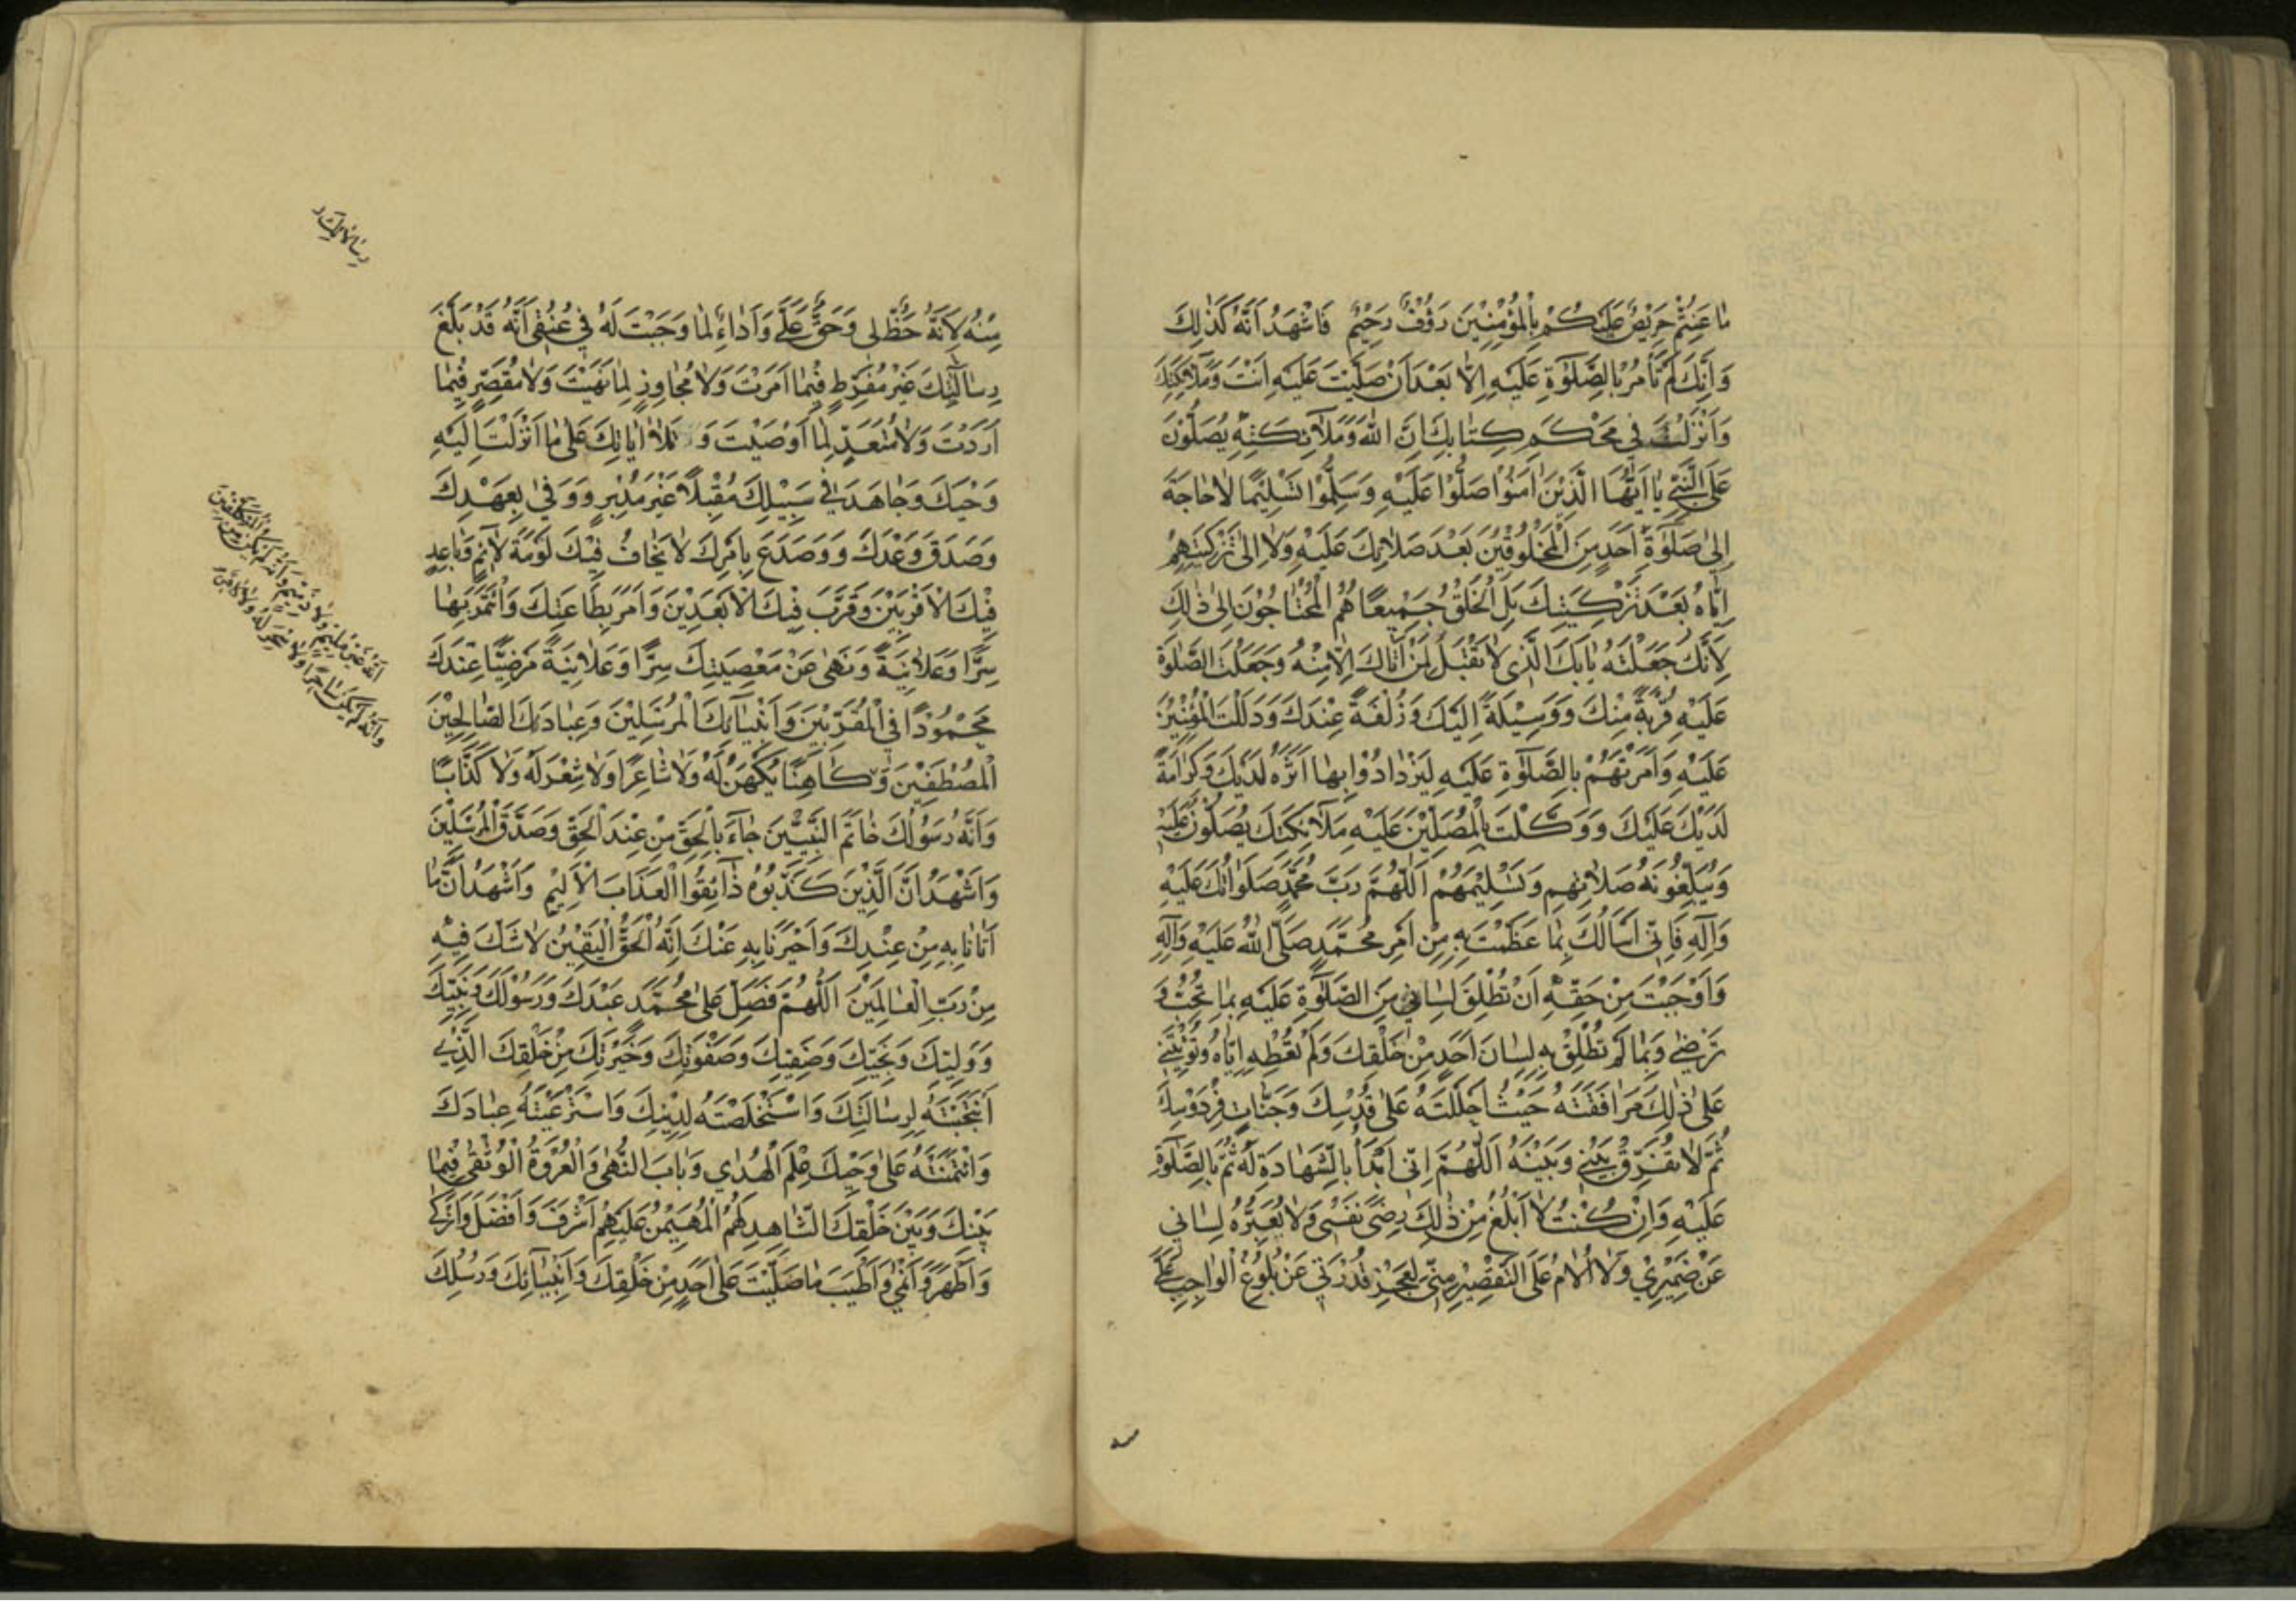 مٰا عَنِتُّمْ حَرِيْصٌ عَلَيْكُمْ بِالْمُؤْمِنِيْنَ رَؤُفٌ رَحِيْمٌ فَاشْهَدُ اَنَّهُ كَذٰلِكَ
وَاَنَّكَ لَمْ تَأْمُرْ بِالصَّلٰوةِ عَلَيْهِ اِلّٰا بَعْدَ اَنْ صَلَّيْتَ عَلَيْهِ اَنْتَ وَمَلآئِكَتُكَ
وَاَنْزَلْتَ فِي مُحْكَمِ كِتٰابِكَ اِنَّ اللّٰهَ وَمَلآئِكَتَهُ يُصَلُّوْنَ
عَلَى النَّبِيِّ يٰا اَيُّهَا الَّذِيْنَ اٰمَنُوْا صَلُّوْا عَلَيْهِ وَسَلِّمُوْا تَسْلِيْمًا لاٰ حٰاجَةَ
اِلىٰ صَلٰوةِ اَحَدٍ مِنَ الْمَخْلُوْقِيْنَ بَعْدَ صَلاٰتِكَ عَلَيْهِ وَلاٰ اِلىٰ تَزْكِيَتِهِمْ
اِيّٰاهُ بَعْدَ تَزْكِيَتِكَ بَلِ الْخَلْقُ جَمِيْعًا هُمُ الْمُحْتٰاجُوْنَ اِلىٰ ذٰلِكَ
لِاَنَّكَ جَعَلْتَهُ بٰابَكَ الَّذِى لاٰ تَقْبَلُ لِمَنْ اَتٰاكَ اِلّٰا مِنْهُ وَجَعَلْتَ الصَّلٰوةَ
عَلَيْهِ قُرْبَةً مِنْكَ وَوَسِيْلَةً اِلَيْكَ وَزُلْفَةً عِنْدَكَ وَدَلَلْتَ الْمُؤْمِنِيْنَ
عَلَيْهِ وَاَمَرْتَهُمْ بِالصَّلٰوةِ عَلَيْهِ لِيَزْدٰادُوْا بِهٰا اَثَرَةً لَدَيْكَ وَكَرٰامَةً
لَدَيْكَ عَلَيْكَ وَوَكَّلْتَ بِالْمُصَلِّيْنَ عَلَيْهِ مَلآئِكَتَكَ يُصَلُّوْنَ عَلَيْهِ
وَيُبَلِّغُوْنَهُ صَلاٰتَهُمْ وَتَسْلِيْمَهُمْ اَللّٰهُمَّ رَبَّ مُحَمَّدٍ صَلَوٰاتُكَ عَلَيْهِ
وَآلِهِ فَاِنِّي اَسْاَلُكَ بِمٰا عَظَّمْتَ بِهِ مِنْ اَمْرِ مُحَمَّدٍ صَلَّى اللّٰهُ عَلَيْهِ وَآلِهِ
وَاَوْجَبْتَ مِنْ حَقِّهِ اَنْ تُطْلِقَ لِسٰانِي مِنَ الصَّلٰوةِ عَلَيْهِ بِمٰا تُحِبُّ وَ
تَرْضىٰ وَبِمٰا لَمْ تُطْلِقْ بِهِ لِسٰانَ اَحَدٍ مِنْ خَلْقِكَ وَلَمْ تُعْطِهِ اِيّٰاهُ وَتُؤْتِيَنِي
عَلىٰ ذٰلِكَ مُرٰافَقَتَهُ حَيْثُ اَحْلَلْتَهُ عَلىٰ قُدْسِكَ وَجَنّٰاتِ فِرْدَوْسِكَ
ثُمَّ لاٰ تُفَرِّقْ بَيْنِي وَبَيْنَهُ اَللّٰهُمَّ اِنِّى اَبْدَأُ بِالشَّهٰادَةِ لَهُ ثُمَّ بِالصَّلٰوةِ
عَلَيْهِ وَاِنْ كُنْتُ لاٰ اَبْلُغُ مِنْ ذٰلِكَ رِضىٰ نَفْسِى وَلاٰ يُعَبِّرُهُ لِسٰانِي
عَنْ ضَمِيْرِيْ وَلاٰ اُلاٰمُ عَلَى التَّقْصِيْرِ مِنِّى لِعَجْزِ قُدْرَتِي عَنْ بُلُوْغِ الْوٰاجِبِ عَلَيَّ
مِنْهُ لِاَنَّهُ حَظٌّ لِى وَحَقٌّ عَلَيَّ وَاَدٰاءٌ لِمٰا وَجَبْتَ لَهُ فِي عُنُقِى اَنَّهُ قَدْ بَلَّغَ
رِسٰالَتَكَ غَيْرَ مُفَرِّطٍ فِيْمٰا اَمَرْتَ وَلاٰ مُجٰاوِزٍ لِمٰا نَهَيْتَ وَلاٰ مُقَصِّرٍ فِيْمٰا
اَرَدْتَ وَلاٰ مُتَعَدٍّ لِمٰا اَوْصَيْتَ وَ تَلاٰ اٰيٰاتِكَ عَلىٰ مٰا اَنْزَلْتَ اِلَيْهِ
وَحْيَكَ وَجٰاهَدَ فِي سَبِيْلِكَ مُقْبِلاً غَيْرَ مُدْبِرٍ وَوَفىٰ بِعَهْدِكَ
وَصَدَّقَ وَعْدَكَ وَوَصَدَعَ بِاَمْرِكَ لاٰ يَخٰافُ فِيْكَ لَوْمَةَ لآئِمٍ وَبٰاعَدَ
فِيْكَ الْاَقْرَبِيْنَ وَقَرَّبَ فِيْكَ الْاَبْعَدِيْنَ وَاَمَرَ بِطٰاعَتِكَ وَائْتَمَرَ بِهٰا
سِرًّا وَعَلاٰنِيَةً وَنَهىٰ عَنْ مَعْصِيَتِكَ سِرًّا وَعَلاٰنِيَةً مَرْضِيًّا عِنْدَكَ
مَحْمُوْدًا فِي الْمُقَرَّبِيْنَ وَاَنْبِيٰآئِكَ الْمُرْسَلِيْنَ وَعِبٰادِكَ الصّٰالِحِيْنَ
الْمُصْطَفَيْنَ وَ كٰاهِنًا يُكَهَّنُ لَهُ وَلاٰ شٰاعِرًا وَلاٰ شِعْرَ لَهُ وَلاٰ كَذّٰابًا
وَاَنَّهُ رَسُوْلُكَ خٰاتَمُ النَّبِيِّيْنَ جٰآءَ بِالْحَقِّ مِنْ عِنْدِ الْحَقِّ وَصَدَّقَ الْمُرْسَلِيْنَ
وَاَشْهَدُ اَنَّ الَّذِيْنَ كَذَّبُوْهُ ذٰآئِقُوا الْعَذٰابَ الْاَلِيْمِ وَاَشْهَدُ اَنَّ مٰا
اَتٰانٰا بِهِ مِنْ عِنْدِكَ وَاَخْبَرَنٰا بِهِ عَنْكَ اَنَّهُ الْحَقُّ الْيَقِيْنُ لاٰ شَكَّ فِيْهِ
مِنْ رَبِّ الْعٰالَمِيْنَ اَللّٰهُمَّ فَصَلِّ عَلىٰ مُحَمَّدٍ عَبْدِكَ وَرَسُوْلِكَ وَنَبِيِّكَ
وَوَلِيِّكَ وَنَجِيِّكَ وَصَفِيِّكَ وَصَفْوَتِكَ وَخِيَرَتِكَ مِنْ خَلْقِكَ الَّذِي
انْتَجَبْتَهُ لِرِسٰالَتِكَ وَاسْتَخْلَصْتَهُ لِدِيْنِكَ وَاسْتَرْعَيْتَهُ عِبٰادَكَ
وَائْتَمَنْتَهُ عَلىٰ وَحْيِكَ عَلَمِ الْهُدٰاي وَبٰابِ النُّهىٰ وَالْعُرْوَةِ الْوُثْقىٰ فِيْمٰا
بَيْنَكَ وَبَيْنَ خَلْقِكَ الشّٰاهِدِ لَهُمُ الْمُهَيْمِنِ عَلَيْهِمْ اَشْرَفَ وَاَفْضَلَ وَاَزْكىٰ
وَاَطْهَرَ وَاَنْمٰي وَاَطْيَبَ مٰا صَلَّيْتَ عَلىٰ اَحَدٍ مِنْ خَلْقِكَ وَاَنْبِيٰآئِكَ وَرُسُلِكَ